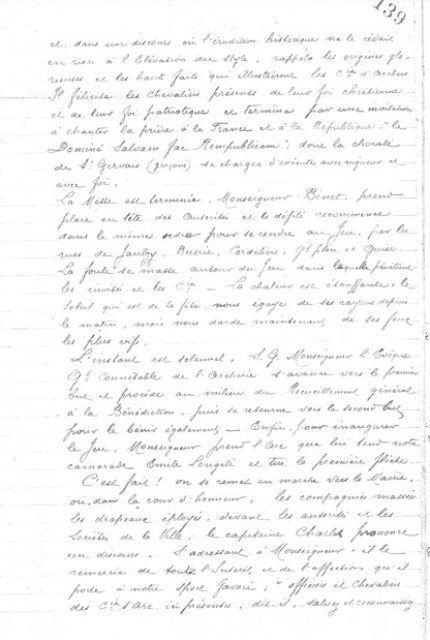 139
et, dans un discours où l'érudition historique ne le cédait
en rien à l'Elévation du style, rappela les origines glo-
rieuses et les hauts faits qui illustrèrent les Cies d'archers
Il félicita les Chevaliers présents de leur foi chrétienne
et de leur foi patriotique et termina par une invitation
à chanter la prière à la France et à la République : "le
Dominé Salvam fac Rempublicam", dont la chorale
de St Gervais (garçons) se chargea d'exécuter avec vigueur et
avec foi.
La Messe est terminée. Monseigneur Binet, prend
place en tête des autorités et le défilé recommence
dans le même ordre pour se rendre au Jeu, par les
rues de Jaulzy, Buerie, Cordeliers, Gd plan, et Guise.
La foule se masse autour du Jeu dans lequel pénètrent
les invités et les Cies — La chaleur est étouffante ; le
Soleil qui est de la fête, nous égaye de ses rayons depuis
le matin, mais nous darde maintenant de ses feux
les plus vifs.
L'instant est solennel. S. G. Monseigneur l'Evêque
Gd Connétable de l'Archerie s'avance vers le premier
but et procède au milieu du Recueillement général
à la Bénédiction, puis se retourne vers le second but
pour le bénir également — Enfin, pour inaugurer
le Jeu, Monseigneur prend l'Arc que lui tend notre
camarade Emile Lengelé et tire la première flèche.
C'est fait ! on se remet en marche vers la Mairie,
où, dans la cour d'honneur, les compagnies massées
les drapeaux éployés, devant les autorités et les
Sociétés de la Ville, le capitaine Charles prononce
un discours. S'adressant à Monseigneur, il le
remercie de toute l'Intérêt et de l'affection qu'il
porte à notre Sport favori ; "officiers et Chevaliers
des Cies d'Arc, ici présentes, dit-il, saluez et reconnaissez